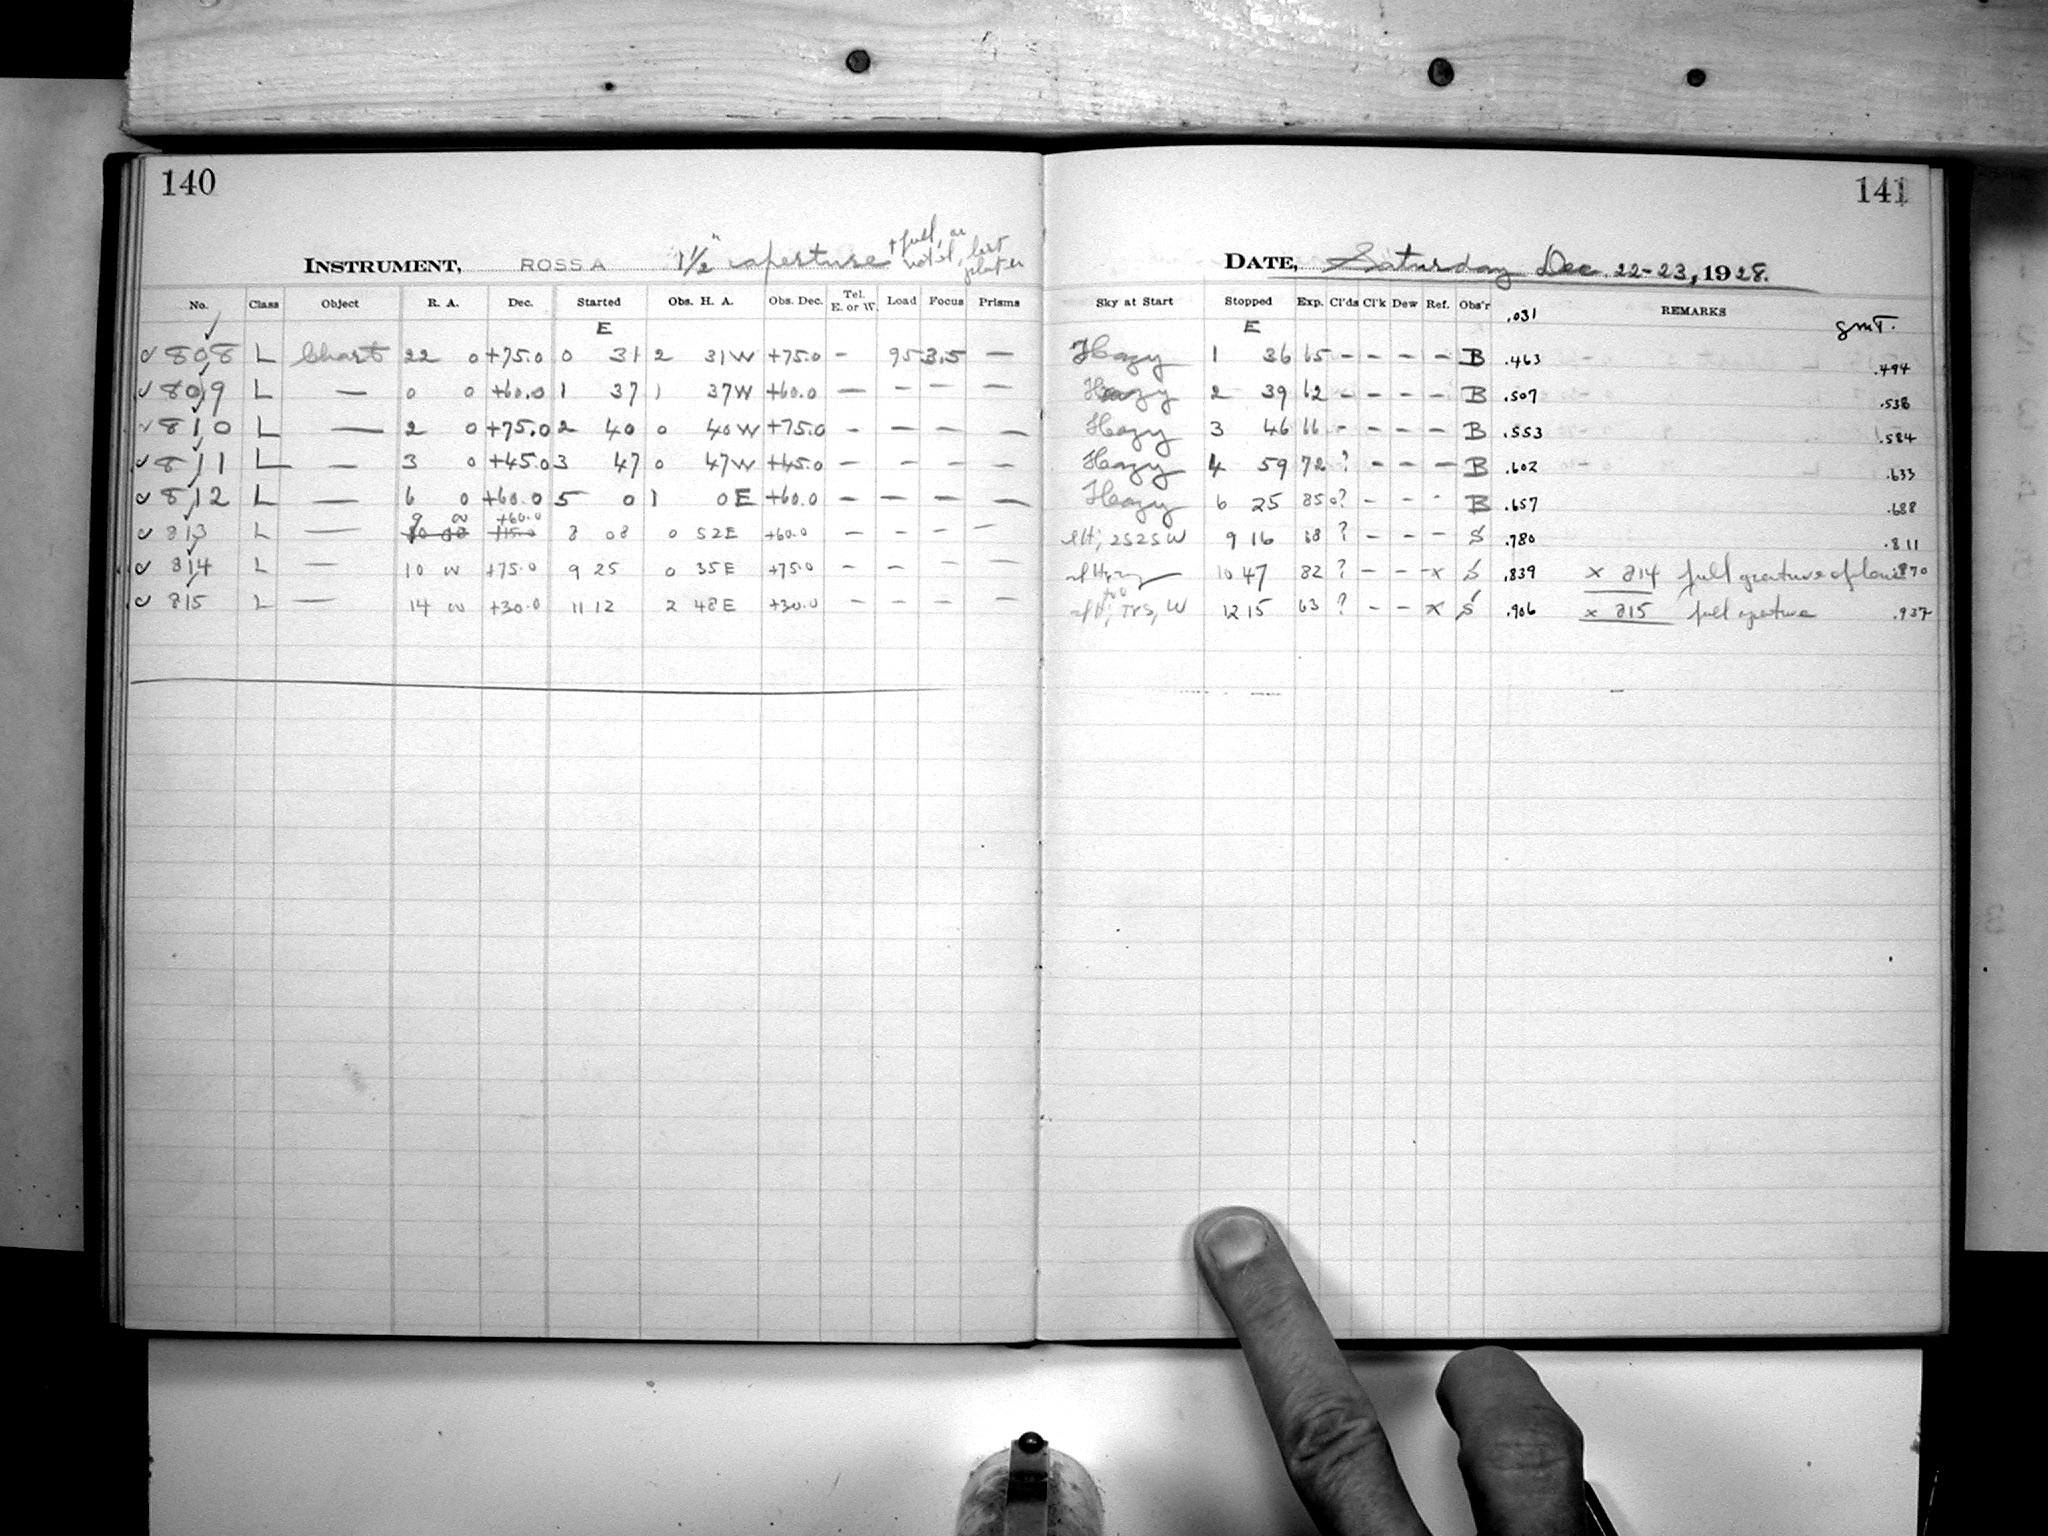 140
141
1½" aperture + full, as noted, last plates
INSTRUMENT, ROSS A
DATE, Saturday Dec. 22-23, 1928.
No. Class Object R. A. Dec. Started Obs. H. A. Obs. Dec. Tel. E. or W. Load Focus Prisms Sky at Start Stopped Exp. Cl'ds Cl'k Dew Ref. Obs'r .031 REMARKS
E E GMT.
808 L Chart 22 0 +75.0 0 31 2 31W +75.0 - 95 3.5 — Hazy 1 36 65 - - - - B .463 .494
809 L — 0 0 +60.0 1 37 1 37W +60.0 — - - — Hazy 2 39 62 - - - - B .507 .538
810 L — 2 0 +75.0 2 40 0 40W +75.0 - - - — Hazy 3 46 66 - - - - B .553 .584
811 L — 3 0 +45.0 3 47 0 47W +45.0 — - — — Hazy 4 59 72 ? - - - B .602 .633
812 L — 6 0 +60.0 5 0 1 0E +60.0 — — — — Hazy 6 25 85 0? - - - B .657 .688
9 00 +60.0
813 L — 10 00 +15.0 8 08 0 52E +60.0 - - - - slH; 2S2S W 9 16 68 ? - - - S .780 .811
814 L — 10 00 +75.0 9 25 0 35E +75.0 - - - - 10 47 82 ? - - x S .839 x 814 full aperture of lens .870
815 L — 14 00 +30.0 11 12 2 48E +30.0 - - - - W 12 15 63 ? - - x S .906 x 815 full aperture .937